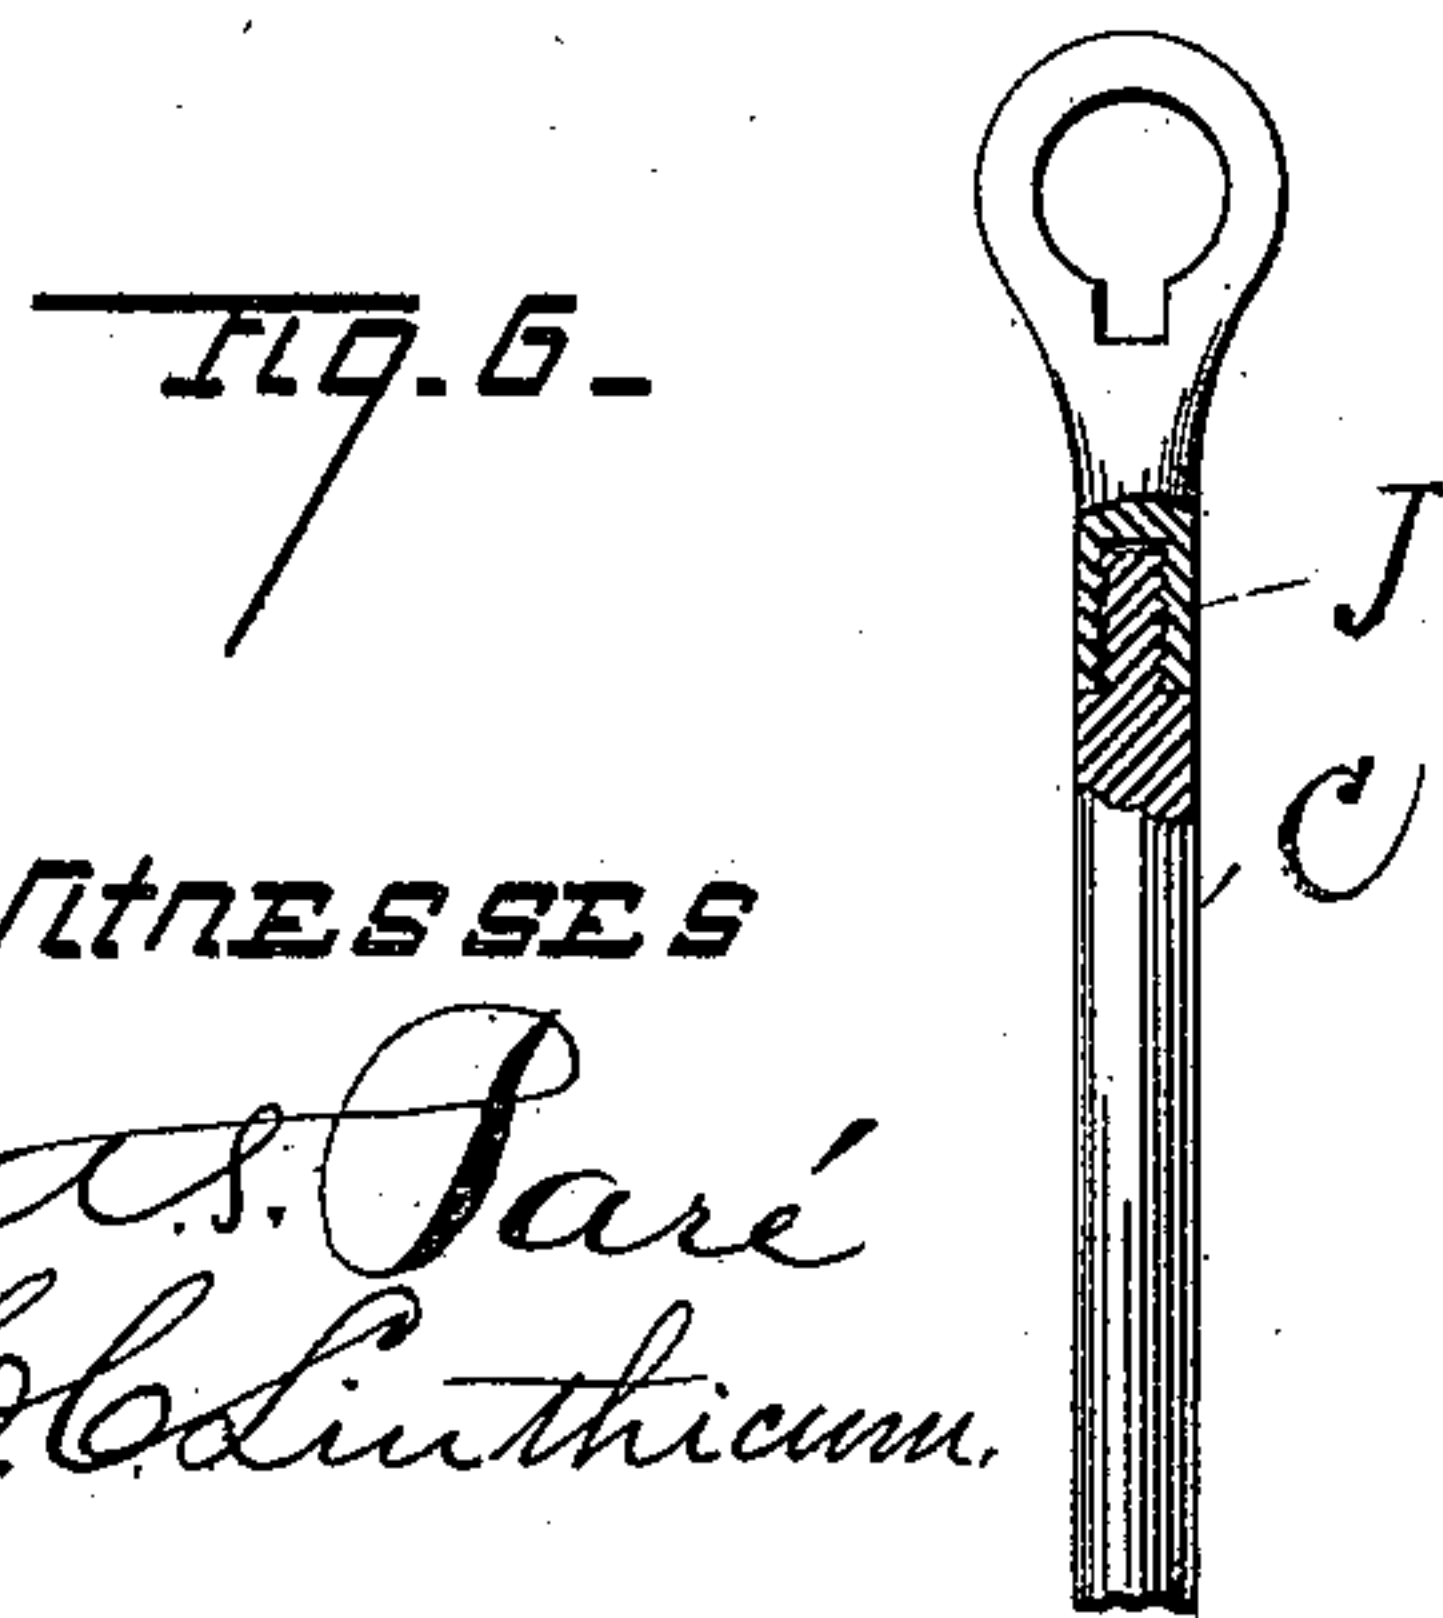 Fig. 6-
J
C
Witnesses
Paré
Linthicum.